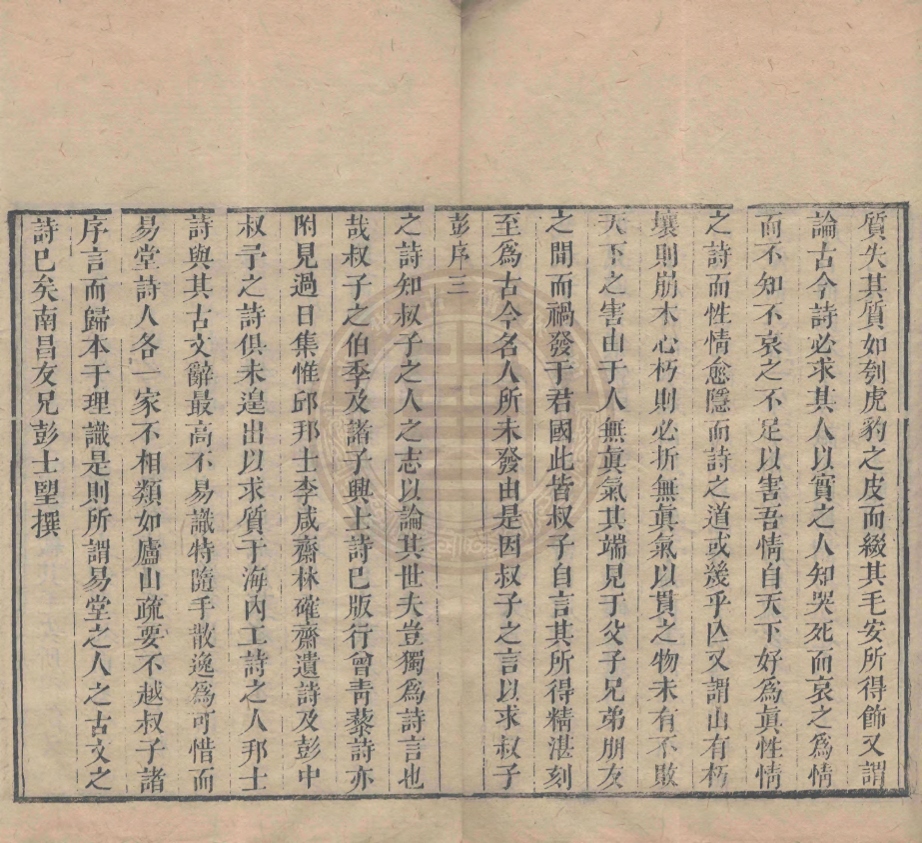 質失其質如刳虎豹之皮而綴其毛安所得飾又謂
論古今詩必求其人以實之人知哭死而哀之爲情
而不知不哀之不足以害吾情自天下好爲眞性情
之詩而性情愈隱而詩之道或幾乎亾又謂山有朽
壤則崩木心朽則必折無眞氣以貫之物未有不敗
天下之害由于人無眞氣其端見于父子兄弟朋友
之閒而禍發于君國此皆叔子自言其所得精湛刻
至爲古今名人所未發由是因叔子之言以求叔子
彭序三
之詩知叔子之人之志以論其世夫豈獨爲詩言也
哉叔子之伯季及諸子興士詩已版行曾靑藜詩亦
附見過日集惟邱邦士李咸齋林確齋遺詩及彭中
叔予之詩俱未遑出以求質于海內工詩之人邦士
詩與其古文辭最高不易識特隨手散逸爲可惜而
易堂詩人各一家不相類如廬山疏要不越叔子諸
序言而歸本于理識是則所謂易堂之人之古文之
詩已矣南昌友兄彭士望撰